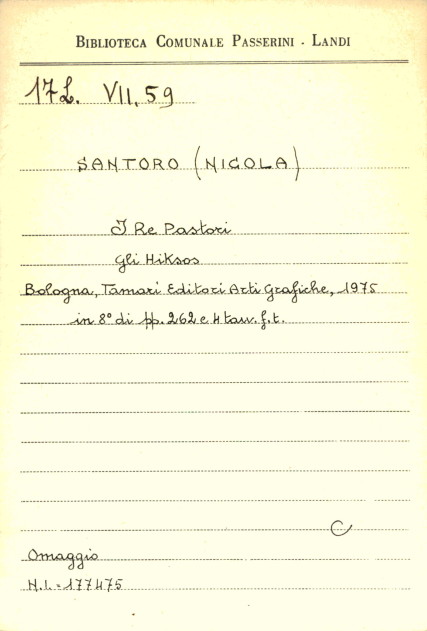 BIBLIOTECA COMUNALE PASSERINI - LANDI
17L. VII. 59
SANTORO (NICOLA)
I Re Pastori
Gli Hiksos
Bologna, Tamari Editori Arti Grafiche, 1975
in 8° di pp. 262 e 4 tav. f. t.
C
Omaggio
N.I. = 177475